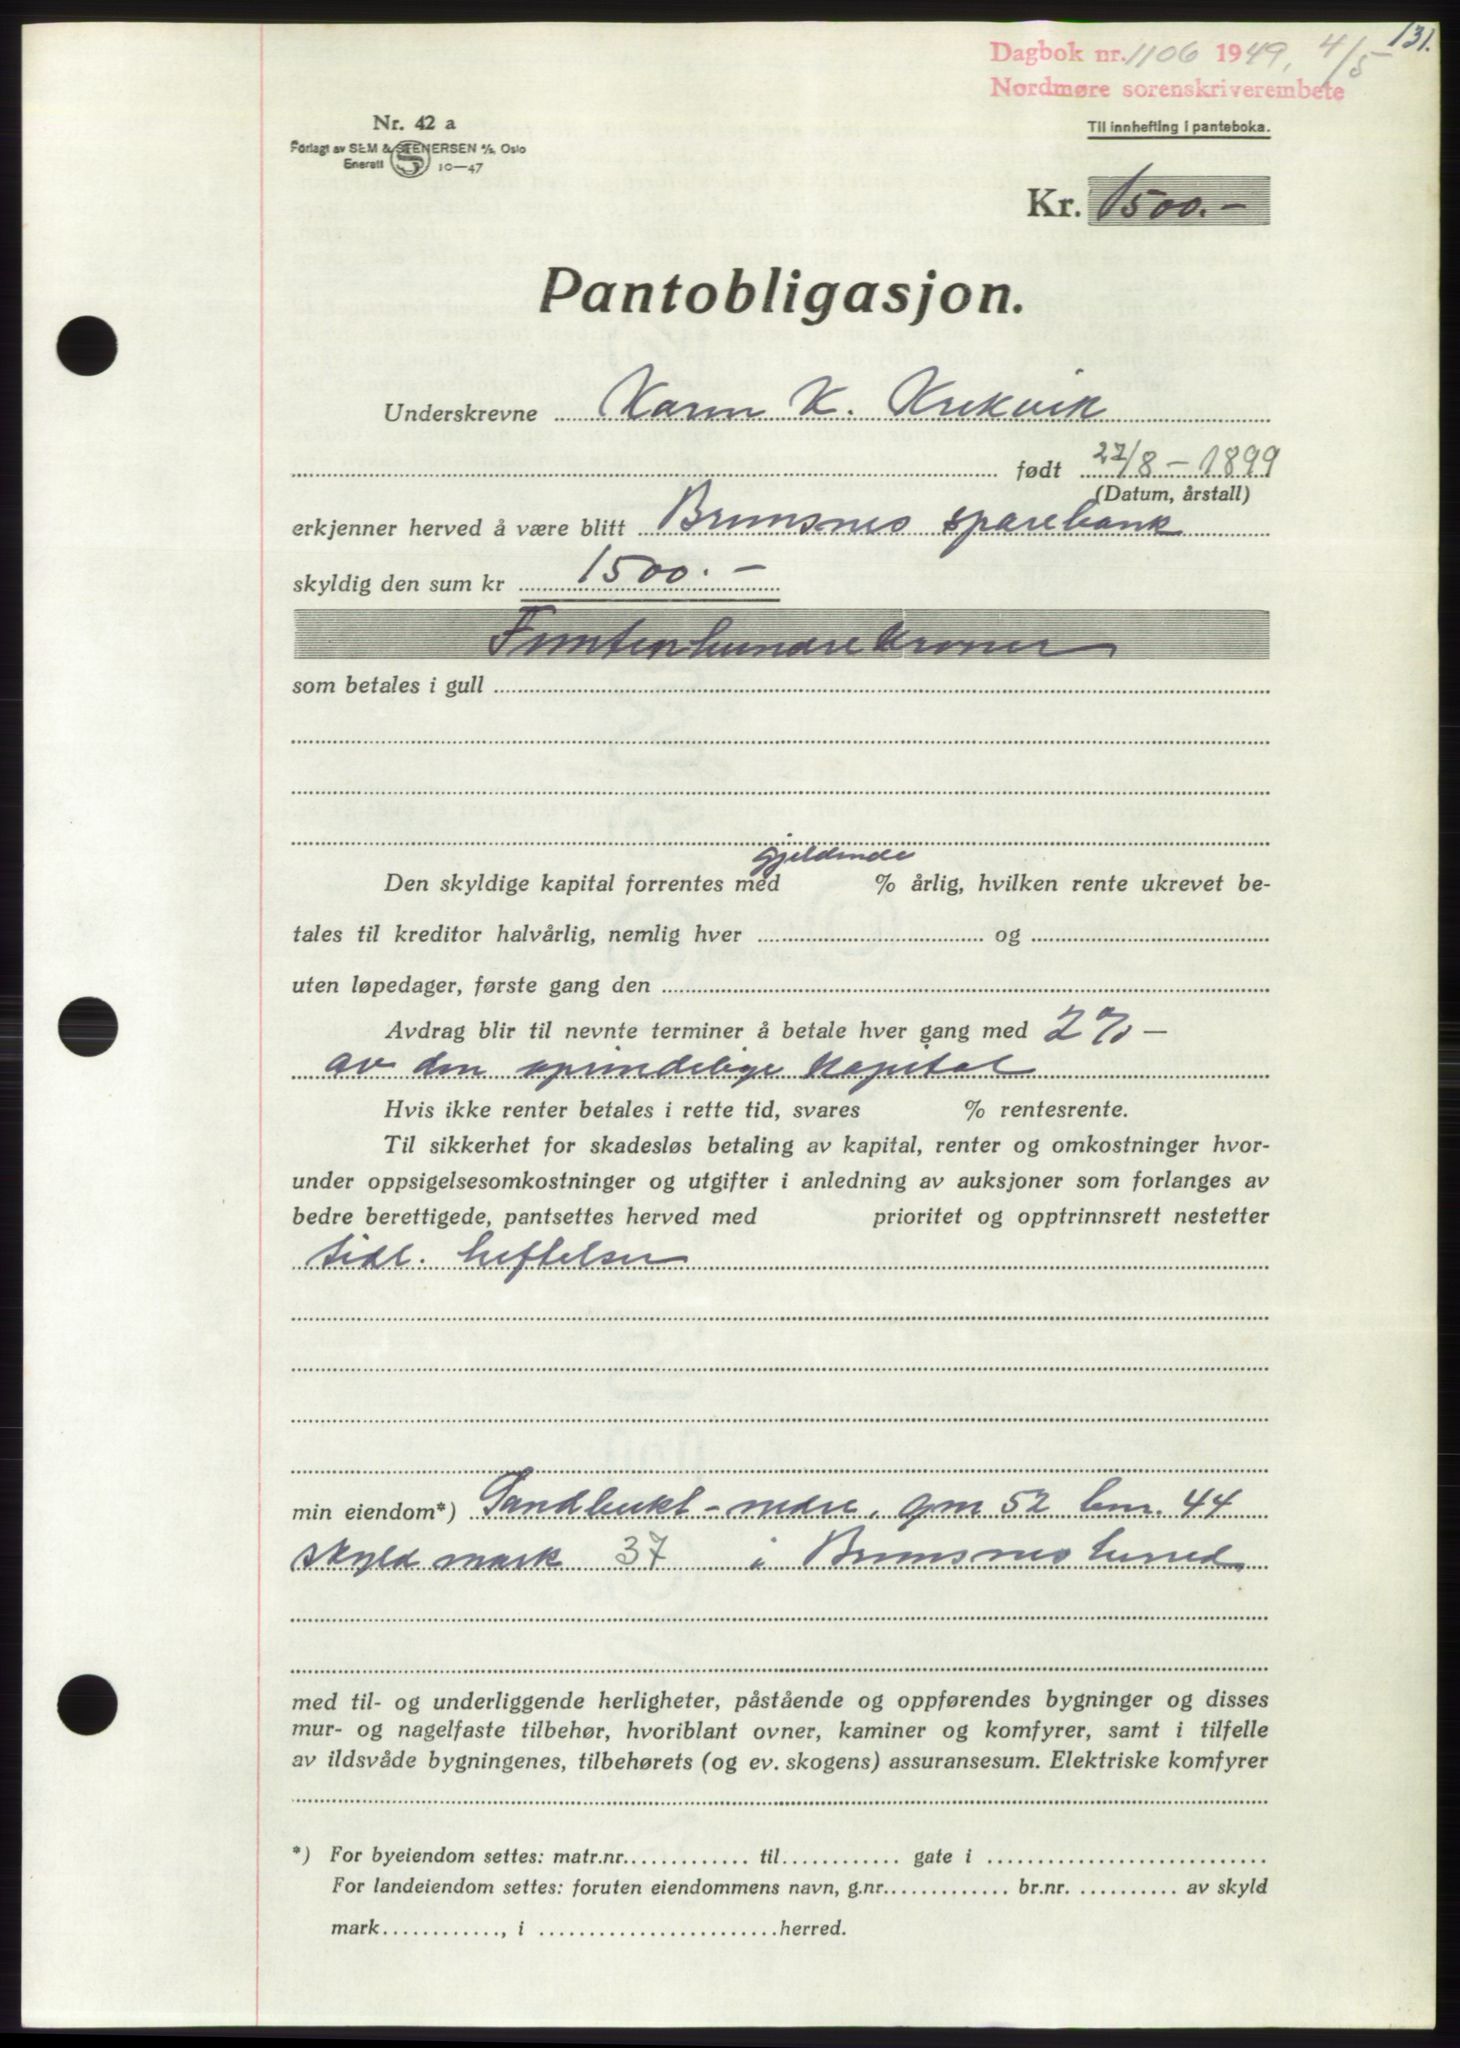 131.
Dagbok nr. 1106 1949, 4/5
Nordmøre sorenskriverembete
Nr. 42 a
Forlagt av SEM & STENERSEN A/S, Oslo
Enerett S 10—47
Til innhefting i panteboka.
Kr. 1500.-
Pantobligasjon.
Underskrevne Karen K. Krekvik
født 27/8 - 1899
(Datum, årstall)
erkjenner herved å være blitt Bremsnes sparebank
skyldig den sum kr 1500.-
Femtenhundre kroner
som betales i gull
gjeldende
Den skyldige kapital forrentes med % årlig, hvilken rente ukrevet be-
tales til kreditor halvårlig, nemlig hver og
uten løpedager, første gang den
Avdrag blir til nevnte terminer å betale hver gang med 2% -
av den oprindelige kapital
Hvis ikke renter betales i rette tid, svares % rentesrente.
Til sikkerhet for skadesløs betaling av kapital, renter og omkostninger hvor-
under oppsigelsesomkostninger og utgifter i anledning av auksjoner som forlanges av
bedre berettigede, pantsettes herved med prioritet og opptrinnsrett nestetter
tidl. heftelser
min eiendom*) Sandbukt - nedre, gnr 52 bnr. 44
skyld mark 37 i Bremsnes herred
med til- og underliggende herligheter, påstående og oppførendes bygninger og disses
mur- og nagelfaste tilbehør, hvoriblant ovner, kaminer og komfyrer, samt i tilfelle
av ildsvåde bygningenes, tilbehørets (og ev. skogens) assuransesum. Elektriske komfyrer
*) For byeiendom settes: matr.nr. til gate i
For landeiendom settes: foruten eiendommens navn, g.nr. br.nr. av skyld
mark, i herred.